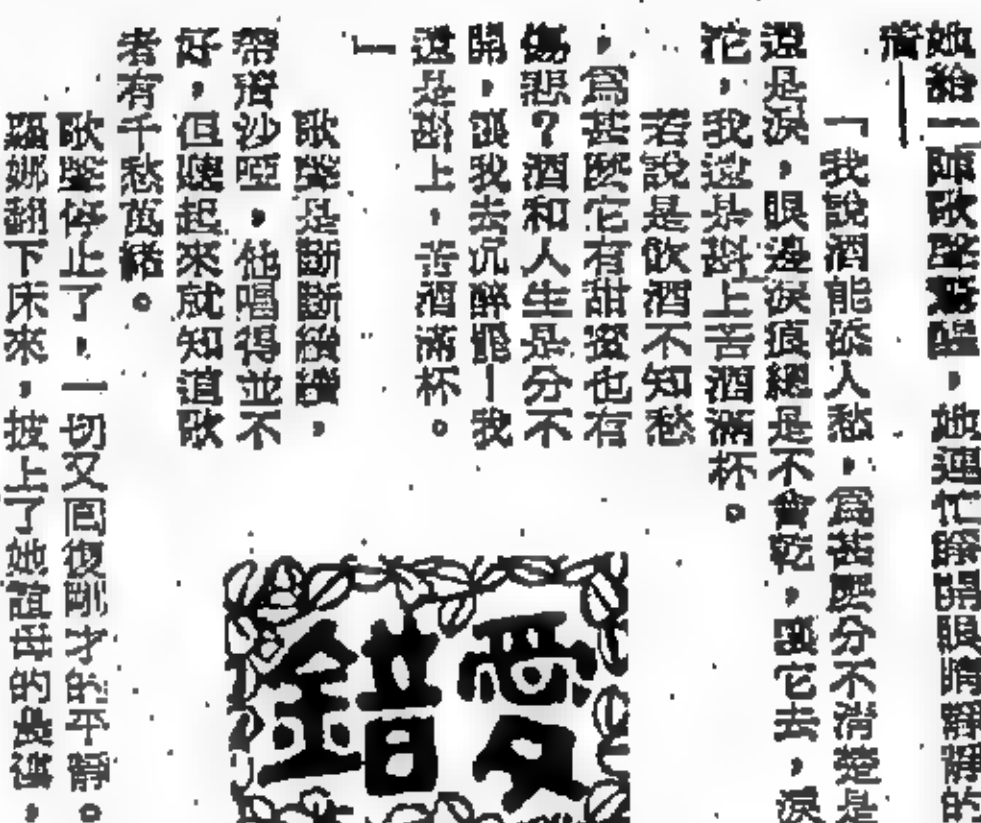 她給一陣歌聲驚醒，她連忙睜開眼睛靜靜的
着——
「我說酒能添人愁，爲甚麼分不清楚是
還是淚，眼邊淚痕總是不會乾，讓它去，淚
沱，我還是斟上苦酒滿杯。
若說是飲酒不知愁
，爲甚麼它有甜蜜也有
傷悲？酒和人生是分不
開，讓我去沉醉罷！我
還是斟上，苦酒滿杯。
」
歌聲是斷斷續續，
帶着沙啞，他唱得並不
好，但聽起來就知道歌
者有千愁萬緒。
歌聲停止了，一切又回復剛才的平靜。
娜翻下床來，披上了她的，
愛
錯